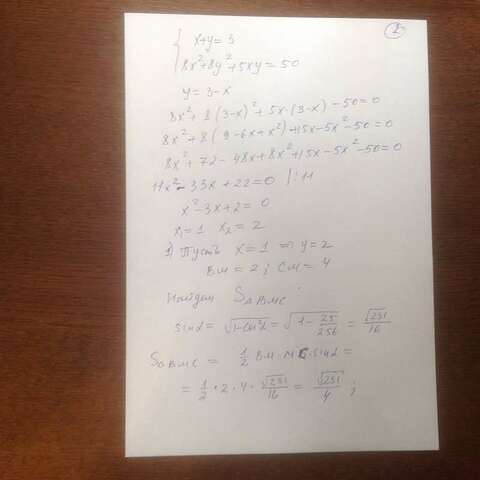 2
{ x+y=3
8x²+8y²+5xy=50
y=3-x
8x²+8(3-x)²+5x·(3-x)-50=0
8x²+8(9-6x+x²)+15x-5x²-50=0
8x²+72-48x+8x²+15x-5x²-50=0
11x²-33x+22=0 |:11
x²-3x+2=0
x₁=1 x₂=2
1) Пусть x=1 ⇒ y=2
BM=2; CM=4
Найдем S△BMC:
sinα=√1-cos²α=√1-25/256=√231/16
S△BMC=1/2 BM·MC·sinα=
=1/2·2·4·√231/16=√231/4;